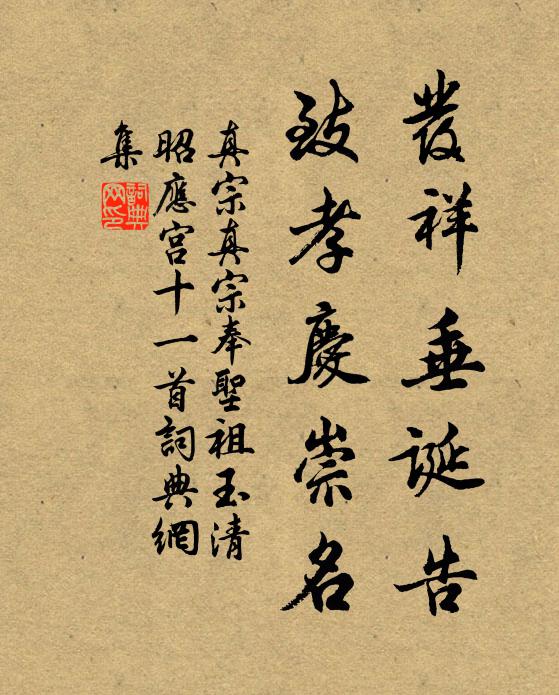 發祥垂誕告
致孝慶崇名
真宗真宗奉聖祖玉清
昭應宮十一首詞典網
集
詞典網印